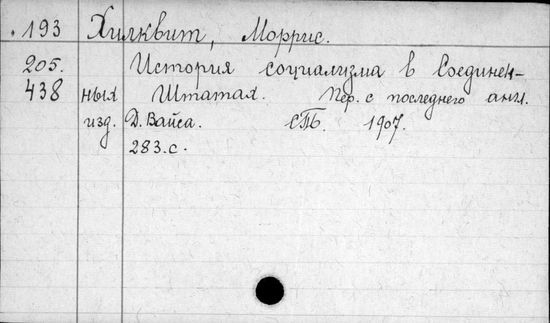 193 Хилквит, Моррис.
205. История социализма в Соединен-
438 ных Штатах. Пер. с последнего англ.
изд. Д. Вайса. СПБ. 1907.
283.с.